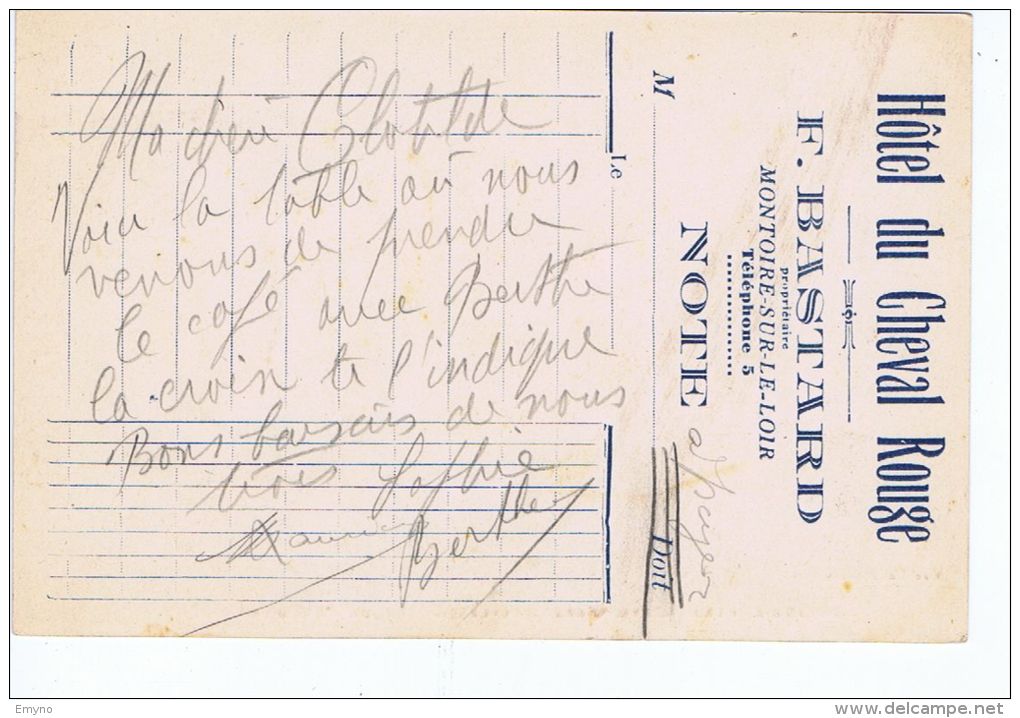 Hôtel du Cheval Rouge
F. BASTARD
propriétaire
MONTOIRE-SUR-LE-LOIR
Téléphone 5
NOTE
M
Doit
Le
a payer
Ma cheri Clotilde
Voici la table où nous
venons de prendre
le café avec Berthe
la croix te l'indique
Bons baisers de nous
trois Sophie
Berthe
Emyno
www.delcampe.net